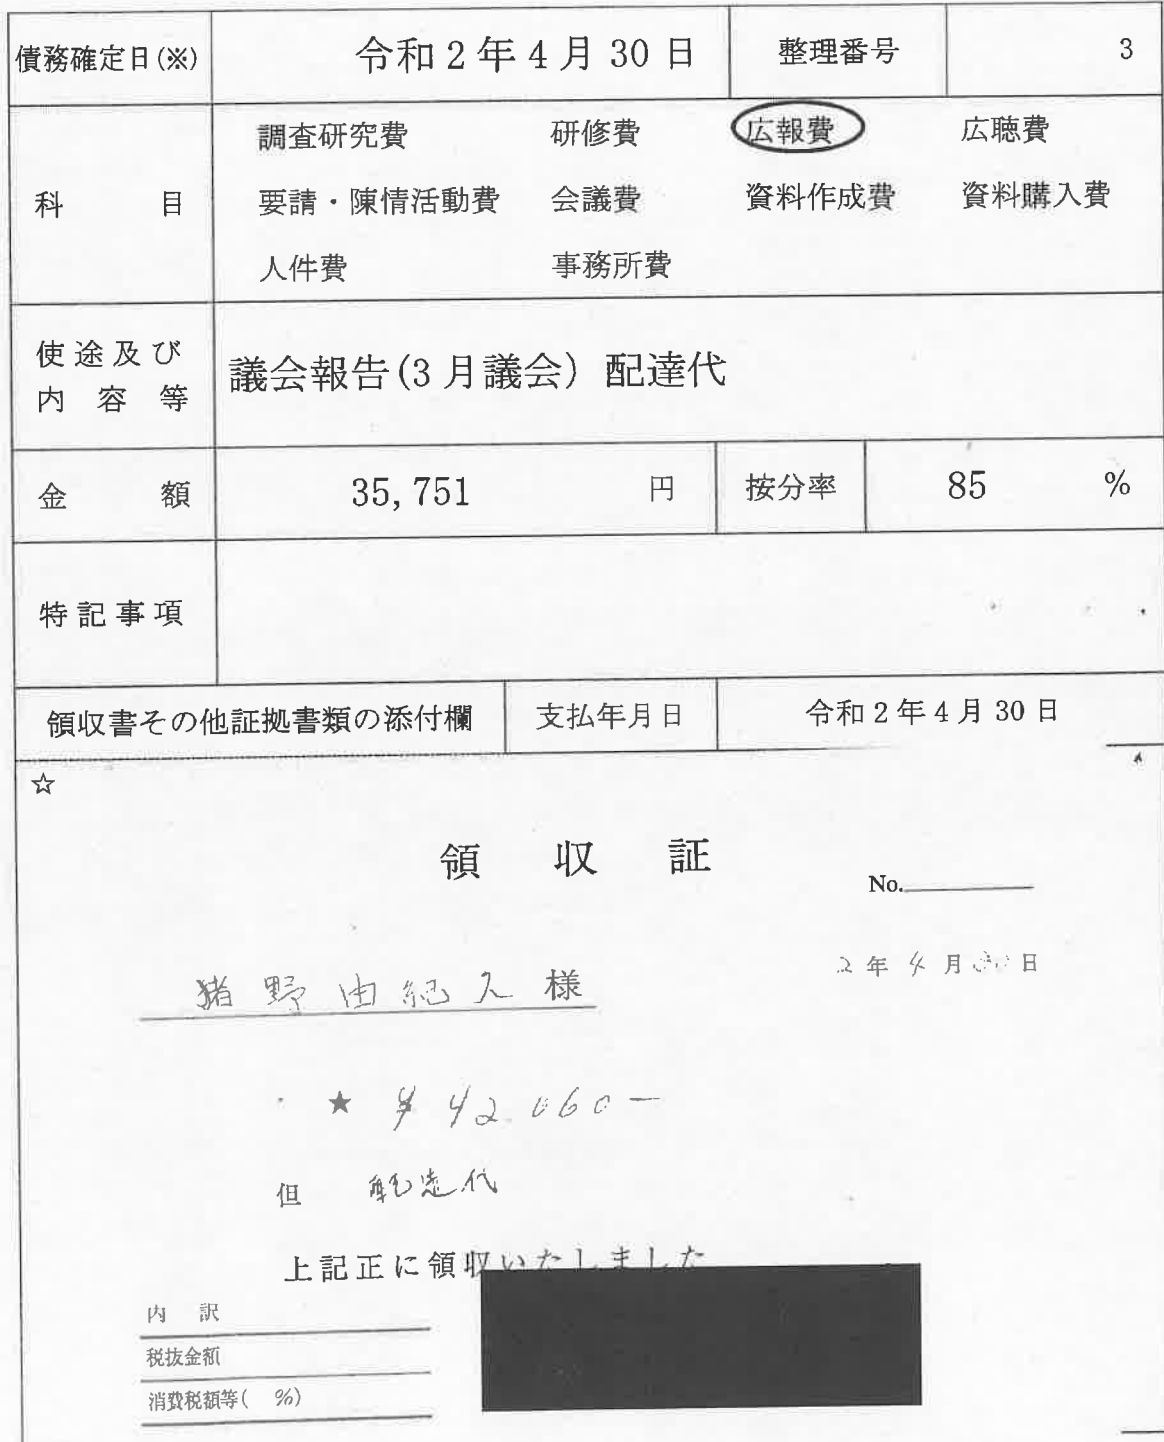 債務確定日(※) 令和2年4月30日 整理番号 3
科 目 調査研究費 研修費 広報費 広聴費
要請・陳情活動費 会議費 資料作成費 資料購入費
人件費 事務所費
使途及び
内容等 議会報告(3月議会) 配達代
金額 35,751 円 按分率 85 %
特記事項
領収書その他証拠書類の添付欄 支払年月日 令和2年4月30日
☆
領 収 証
No.
2年4月30日
猪野由紀久様
★ ¥42,060-
但 配達代
上記正に領収いたしました
内 訳
税抜金額
消費税額等( %)